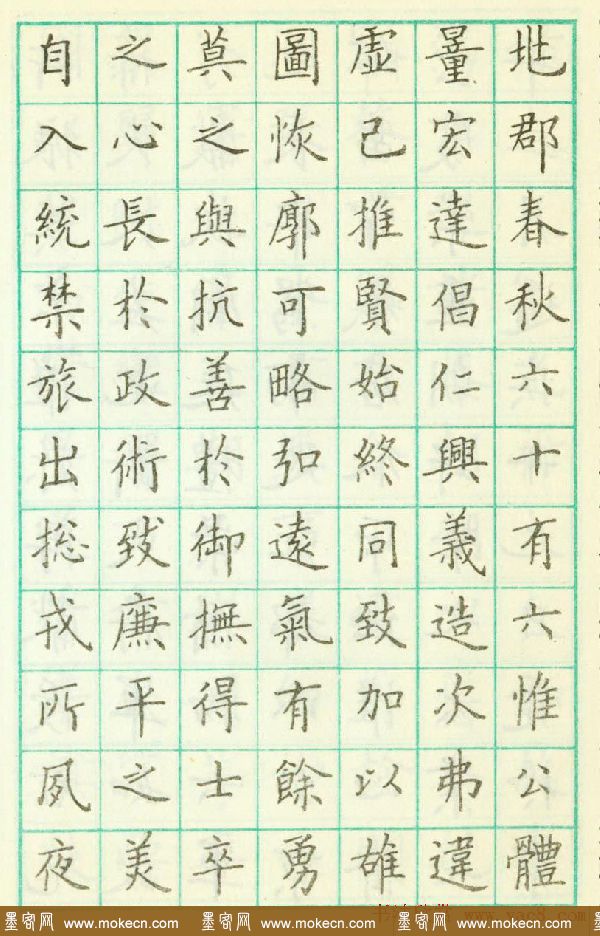 兆郡春秋六十有六惟公體
量宏達倡仁興義造次弗違
虚己推賢始終同致加以雄
圖恢廓可略弘遠氣有餘勇
莫之與抗善於御撫得士卒
之心長於政術致廉平之美
自入統禁旅出総戎所夙夜
墨客网 www.mokecn.com 墨客网 www.mokecn.com 墨客网 www.mokecn.com